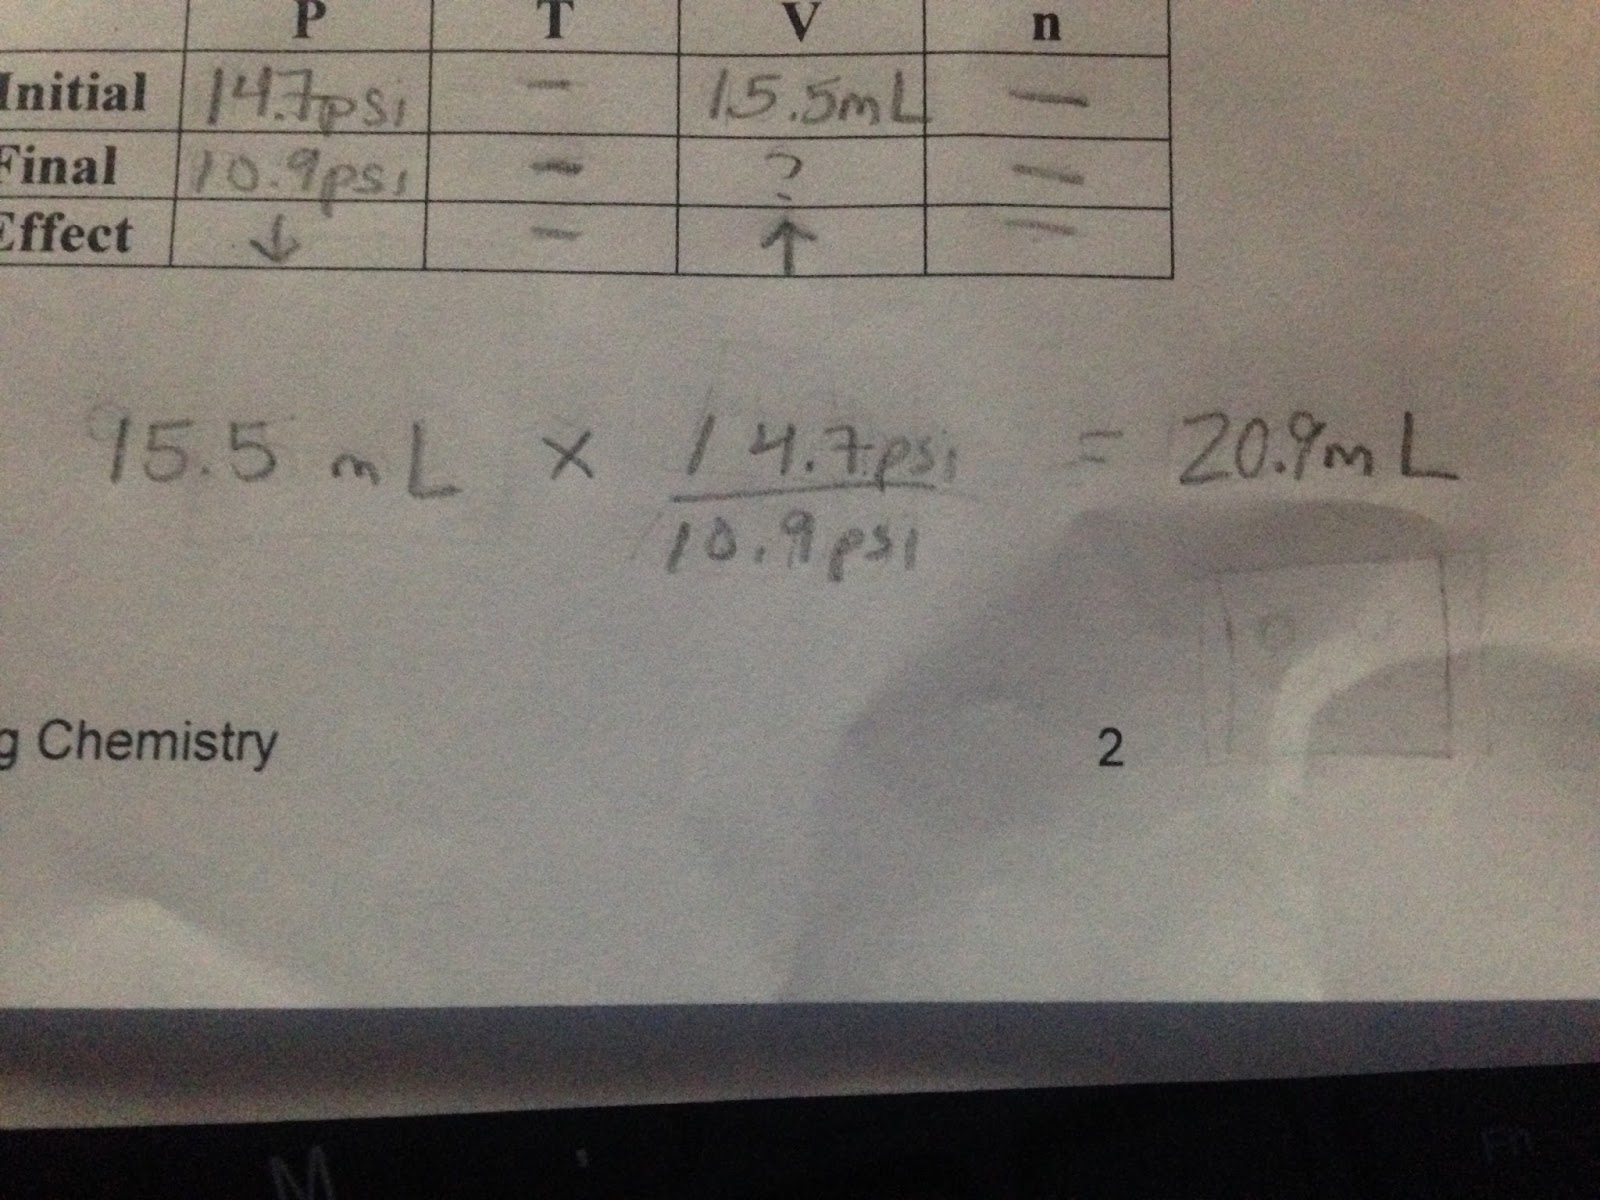 P T V n
Initial 14.7psi – 15.5mL –
Final 10.9psi – ? –
Effect ↓ – ↑ –
15.5 mL × 14.7psi = 20.9mL
10.9psi
g Chemistry 2
M
Fn